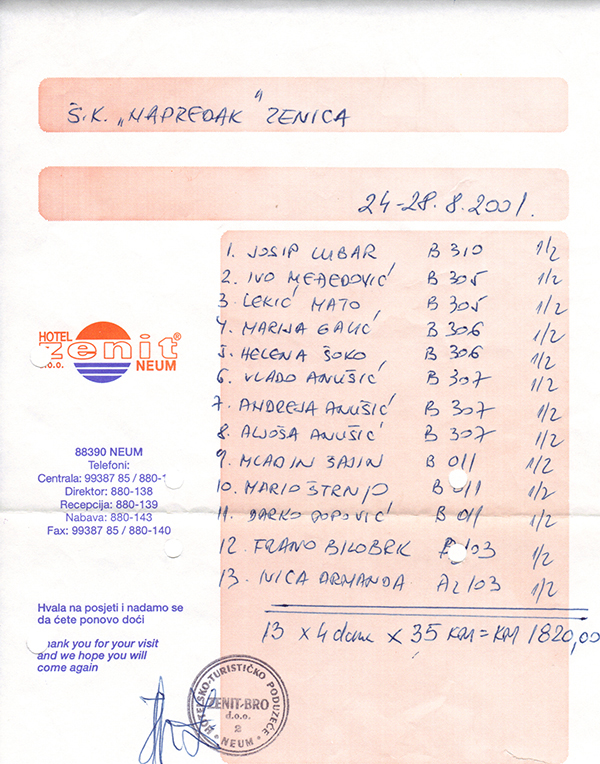 Š.K. „NAPREDAK“ ZENICA
24-28.8.2001.
1. JOSIP LUBAR B 310 1/2
2. IVO MEĐEDOVIĆ B 305 1/2
3. LEKIĆ MATO B 305 1/2
4. MARIJA GALIĆ B 306 1/2
5. HELENA ŠOKO B 306 1/2
6. VLADO ANUŠIĆ B 307 1/2
7. ANDREJA ANUŠIĆ B 307 1/2
8. ALJOŠA ANUŠIĆ B 307 1/2
9. MLADIN B 011 1/2
10. MARIO B 011 1/2
11. DARKO POPOVIĆ B 011 1/2
12. FRANO BILOBRK 103 1/2
13. IVICA ARMANDA A2103 1/2
13 x 4 dana x 35 KM = KM 1820,00
HOTEL
zenit®
d.o.o. NEUM
88390 NEUM
Telefoni:
Centrala: 99387 85 / 880-1
Direktor: 880-138
Recepcija: 880-139
Nabava: 880-143
Fax: 99387 85 / 880-140
Hvala na posjeti i nadamo se
da ćete ponovo doći
hank you for your visit
and we hope you will
come again
HOTELSKO-TURISTIČKO PODUZEĆE
ZENIT-BRO
d.o.o.
2
NEUM